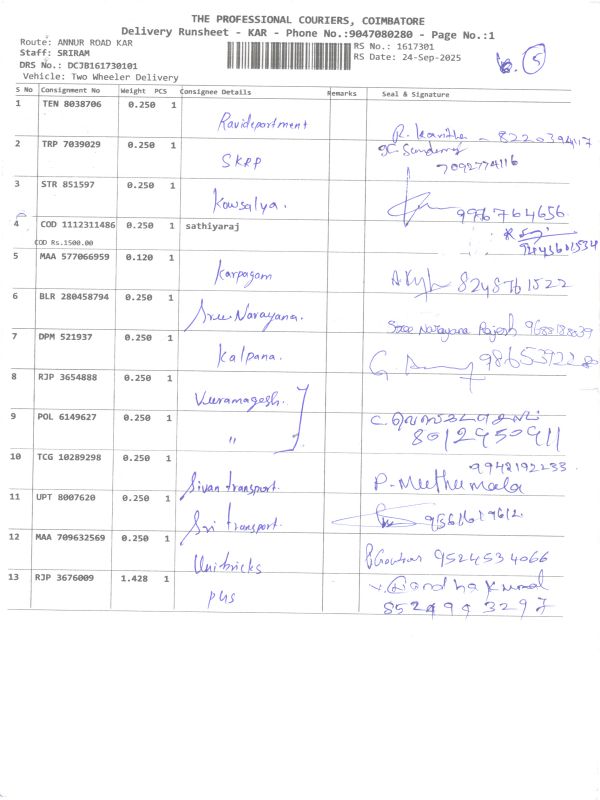 THE PROFESSIONAL COURIERS, COIMBATORE
Delivery Runsheet - KAR - Phone No.:9047080280 - Page No.:1
Route: ANNUR ROAD KAR
RS No.: 1617301
Staff: SRIRAM
RS Date: 24-Sep-2025
DRS No.: DCJB161730101
Vehicle: Two Wheeler Delivery
S No Consignment No Weight PCS Consignee Details Remarks Seal & Signature
1 TEN 8038706 0.250 1
Ravidepartment R. Kavitha - 8220394117
2 TRP 7039029 0.250 1
SKRP 7092774116
3 STR 851597 0.250 1
Kowsalya. 996764656
4 COD 1112311486 0.250 1 sathiyaraj
COD Rs.1500.00
5 MAA 577066959 0.120 1
Karpagam 8248761522
6 BLR 280458794 0.250 1
Sree Narayana. Sree Narayana Rajesh
7 DPM 521937 0.250 1
Kalpana.
8 RJP 3654888 0.250 1
Veeramagesh.
9 POL 6149627 0.250 1
" 8012950911
10 TCG 10289298 0.250 1
9942192233
Sivan transport. P. Muthumala
11 UPT 8007620 0.250 1
Sri transport.
12 MAA 709632569 0.250 1
Unibricks 9524534066
13 RJP 3676009 1.428 1
8524993297